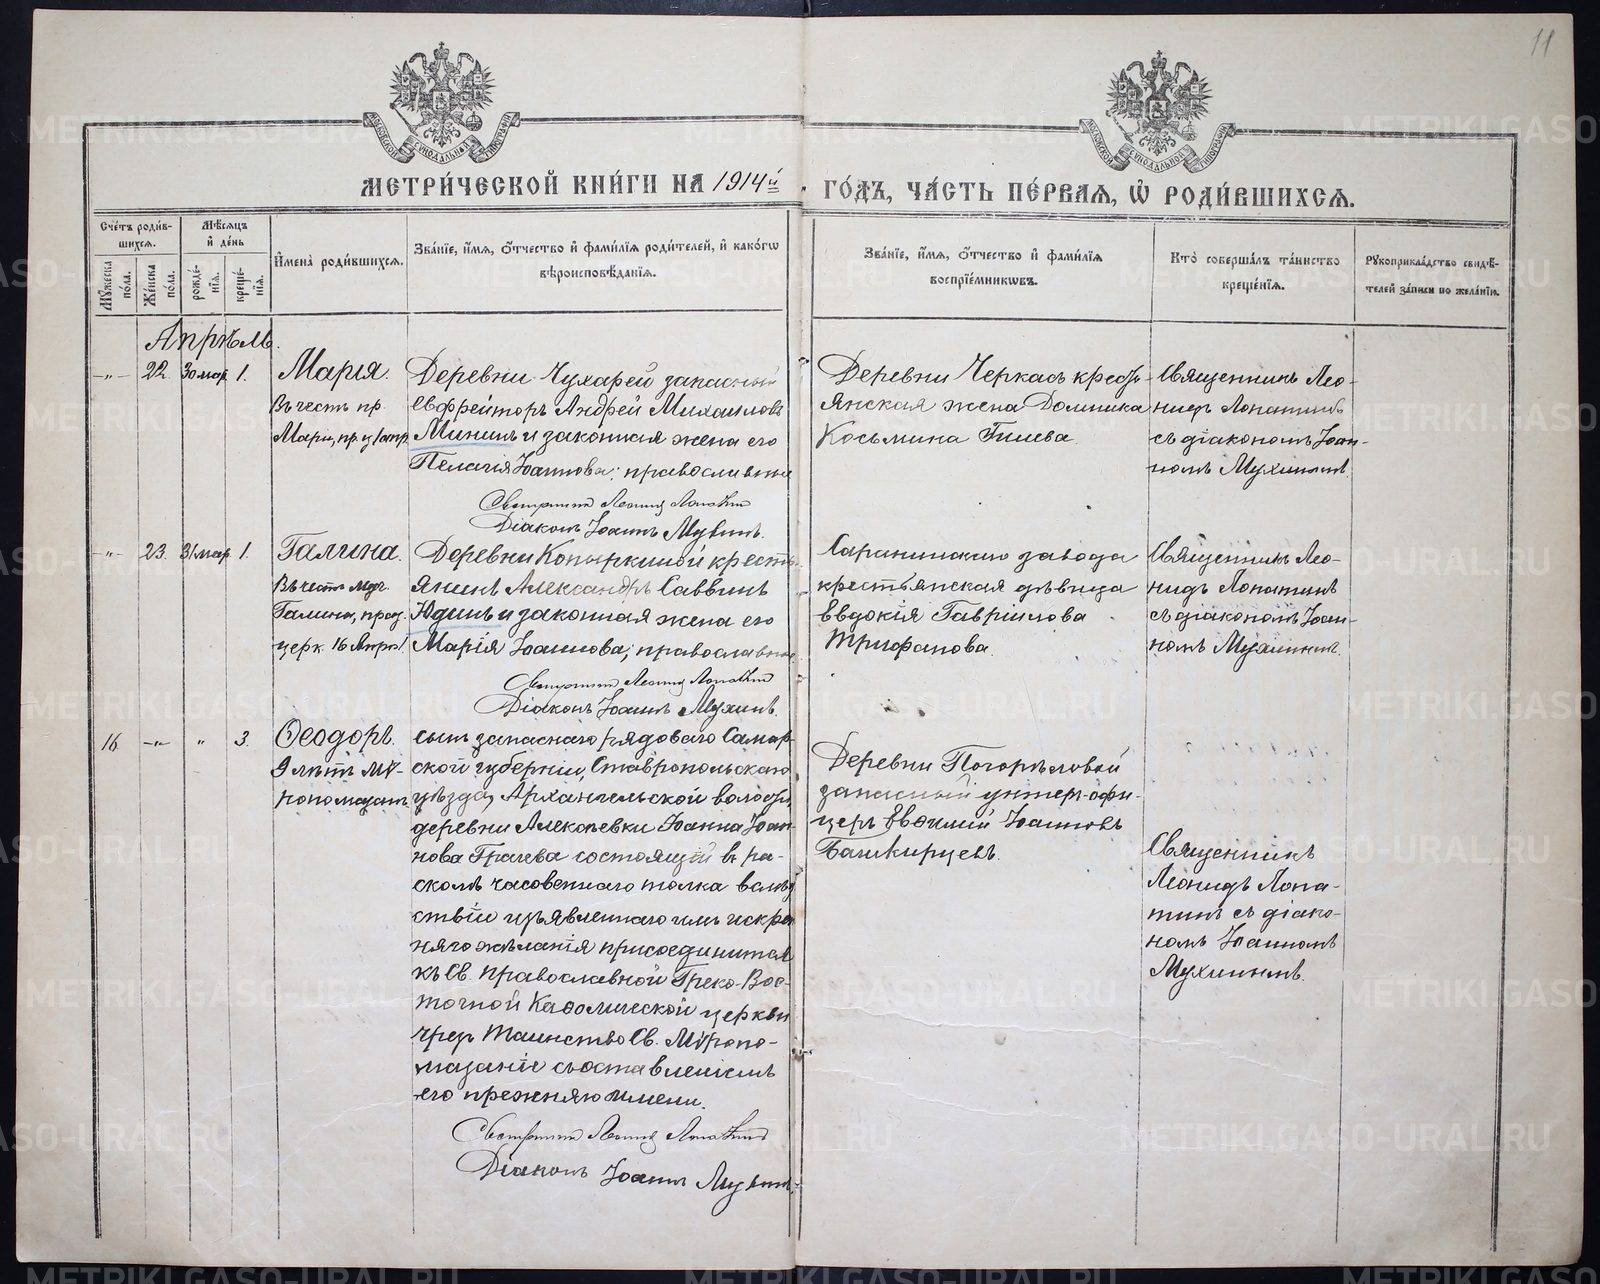 11
МЕТРИ́ЧЕСКОЙ КНИ́ГИ НА 1914й ГО́ДЪ, ЧА́СТЬ ПЕ́РВАЯ, Ѡ РОДИ́ВШИХСЯ.
Сче́тъ роди́в-
шихся.
Мѣ́сяцъ
и де́нь
Му́жеска по́ла.
Же́нска по́ла.
рожде́-
нія.
креще́-
нія.
Имена̀ роди́вшихся.
Зва́ніе, и́мя, о́тчество и фами́лія роди́телей, и како́гѡ
вѣроисповѣ́данія.
Зва́ніе, и́мя, о́тчество и фами́лія
воспріе́мникѡвъ.
Кто̀ соверша́лъ та́инство
креще́нія.
Рукоприкла́дство свидѣ́-
телей за́писи по жела́нію.
Апрѣль.
-"- 22. 30 мар. 1.
Марія.
Въ честь пр.
Маріи, пр. ц. 1 апр.
Деревни Чухарей запасный
ефрейторъ Андрей Михаиловъ
Мининъ и законная жена его
Пелагія Іоаннова; православные
Священникъ Леонид Лопатин
Діаконъ Іоаннъ Мухинъ.
Деревни Черкасъ кресть-
янская жена Домника
Косьмина Гилева.
Священникъ Лео-
нидъ Лопатинъ
съ діакономъ Іоан-
номъ Мухинымъ.
-"- 23. 31 мар. 1.
Галина.
Въ честь муч.
Галины, праз.
церк. 16 Апрѣл.
Деревни Копыркиной кресть-
янинъ Александръ Саввинъ
Юдинъ и законная жена его
Марія Іоаннова; православные
Священникъ Леонид Лопатин
Діаконъ Іоаннъ Мухинъ.
Саранинскаго завода
крестьянская дѣвица
Евдокія Гавріилова
Трифанова.
Священникъ Лео-
нидъ Лопатинъ
съ діакономъ Іоан-
номъ Мухинымъ.
16 -"- " 3.
Ѳеодоръ.
9 лѣтъ мѵ-
ропомазанъ
сынъ запаснаго рядоваго Самар-
ской губерніи, Ставропольскаго
уѣзда, Архангельской волости,
деревни Алексѣевки Іоанна Іоан-
нова Грачева состоящій въ ра-
сколѣ часовеннаго толка вслѣд-
ствіи изъявленнаго имъ искрен-
няго желанія присоединиться
къ Св. Православной Греко-Вос-
точной Каѳолической церкви
чрезъ Таинство Св. Мѵропо-
мазаніе съ оставленіемъ
его прежняго имени.
Священникъ Леонид Лопатин
Діаконъ Іоаннъ Мухинъ.
Деревни Погорѣловой
запасный унтеръ-офи-
церъ Евѳимій Іоанновъ
Башкирцевъ.
Священникъ
Леонидъ Лопа-
тинъ съ діако-
номъ Іоанномъ
Мухинымъ.
METRIKI.GASO-URAL.RU